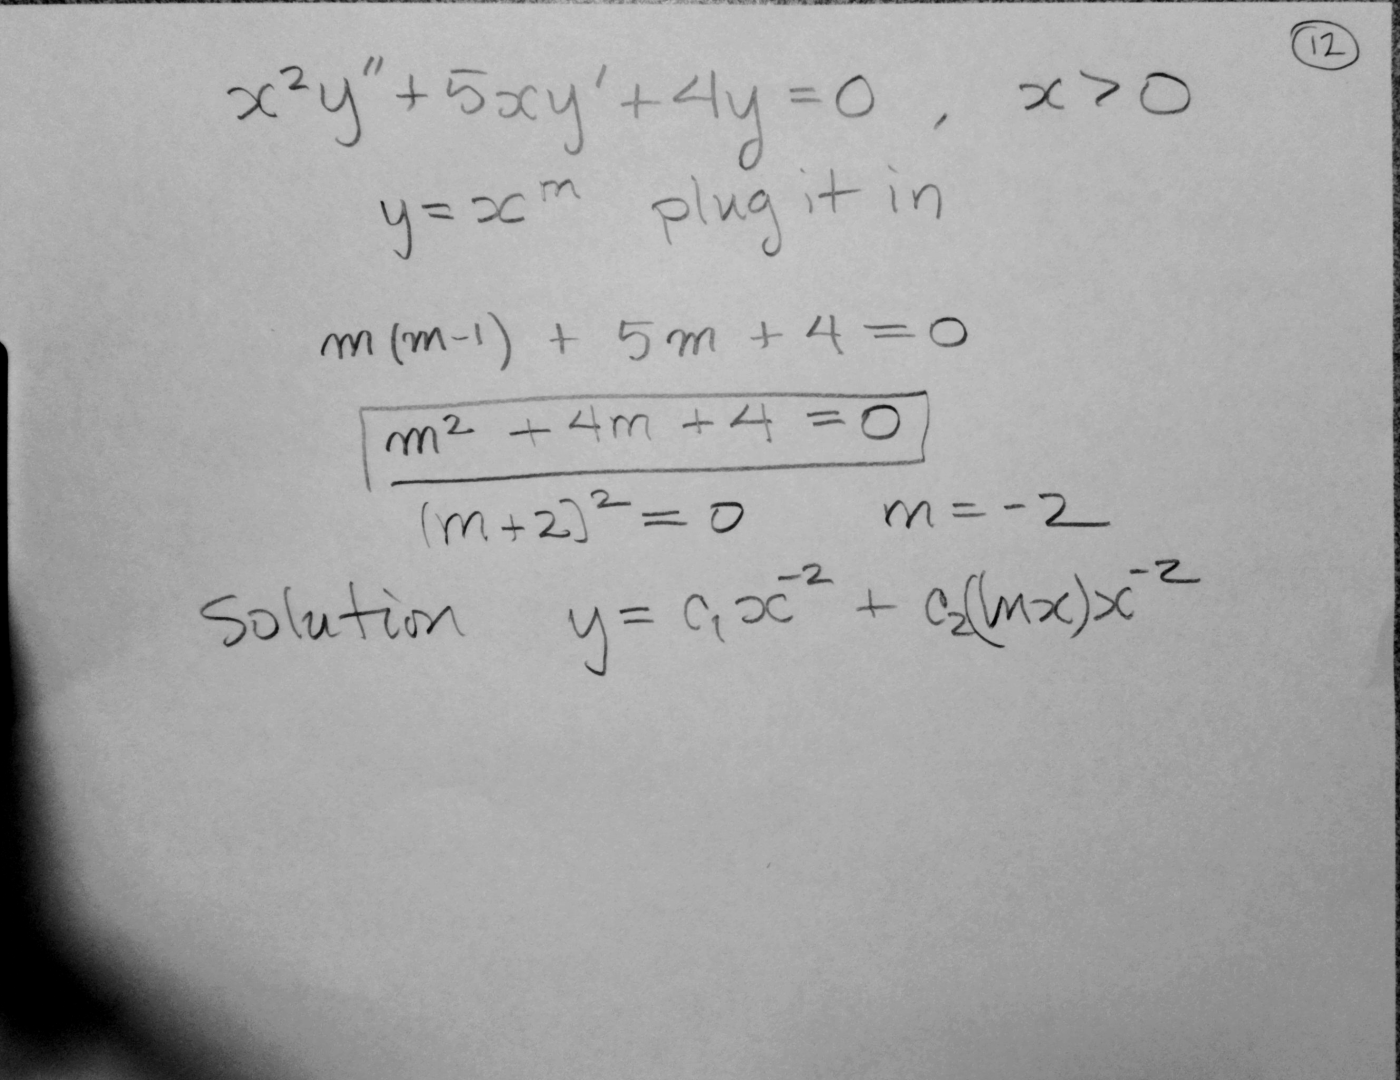 12
x²y″ + 5xy′ + 4y = 0 , x > 0
y = xᵐ plug it in
m(m-1) + 5m + 4 = 0
m² + 4m + 4 = 0
(m+2)² = 0 m = -2
Solution y = c₁x⁻² + c₂(lnx)x⁻²